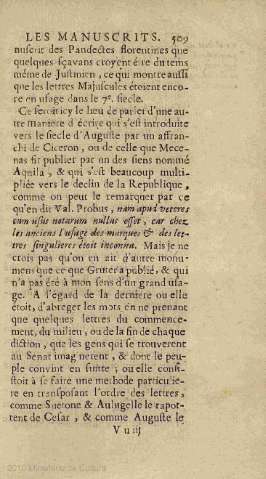 LES MANUSCRITS. 509
nuscrit des Pandectes florentines que
quelques sçavans croyent être du tems
même de Justinien, ce qui montre aussi
que les lettres Majuscules étoient enco-
re en usage dans le 7e. siecle.
Ce seroit icy le lieu de parler d'une au-
tre maniere d'écrire qui s'est introduite
vers le siecle d'Auguste par un affran-
chi de Ciceron, ou de celle que Mece-
nas fit publier par un des siens nommé
Aquila, & qui s'est beaucoup multi-
pliée vers le declin de la Republique,
comme on peut le remarquer par ce
qu'en dit Val. Probus, nam apud veteres
cum usus notarum nullus esset, car chez
les anciens l'usage des marques & des let-
tres singulieres étoit inconnu. Mais je ne
crois pas qu'on en ait d'autre monu-
mens que ce que Gruter a publié, & qui
n'a pas été à mon sens d'un grand usa-
ge. A l'égard de la derniere ou elle
étoit, d'abreger les mots en ne prenant
que quelques lettres du commence-
ment, du milieu, ou de la fin de chaque
diction, que les gens qui se trouverent
au Senat imaginerent, & dont le peu-
ple convint en suitte; ou elle consi-
stoit à se faire une methode particulie-
re en transposant l'ordre des lettres,
comme Suetone & Aulugelle le rapor-
tent de Cesar, & comme Auguste le
V u iij
2010 Ministerio de Cultura